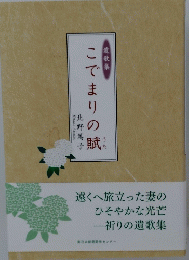 遺歌集
こでまりの賦
遠くへ旅立った妻の
ひそやかな光芒
―祈りの遺歌集